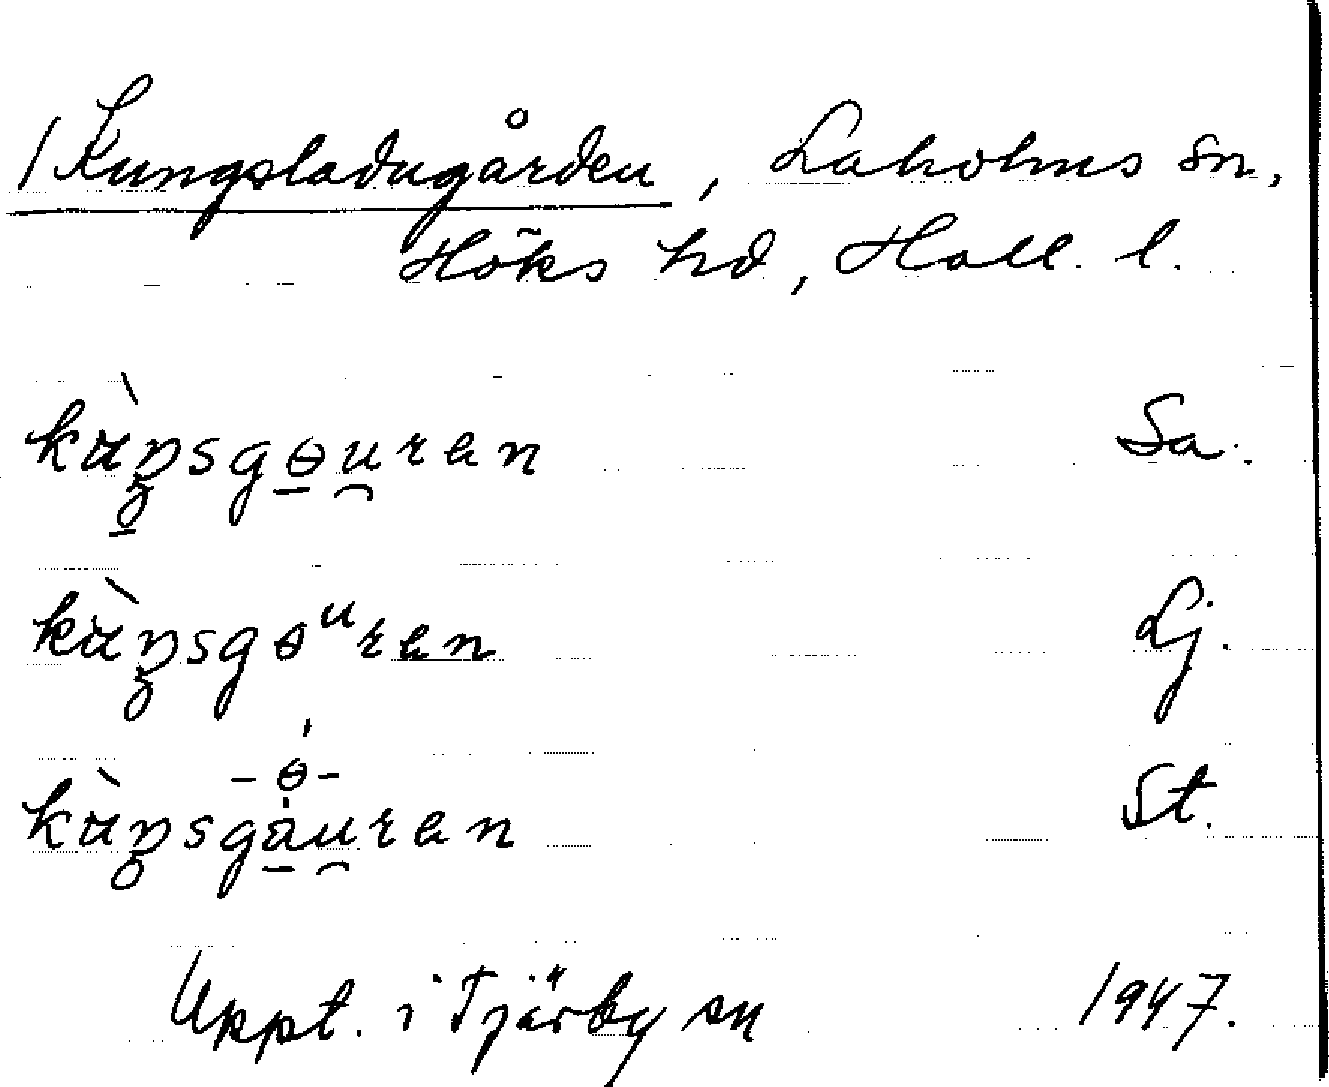 / Kungsladugården, Laholms sn,
Höks hd, Hall. l.
kùŋsgɵuren Sa.
kùŋsgɵᵘren Lj.
-ɵ́-
kùŋsgáuren St.
Uppt. i Tjärby sn 1947.